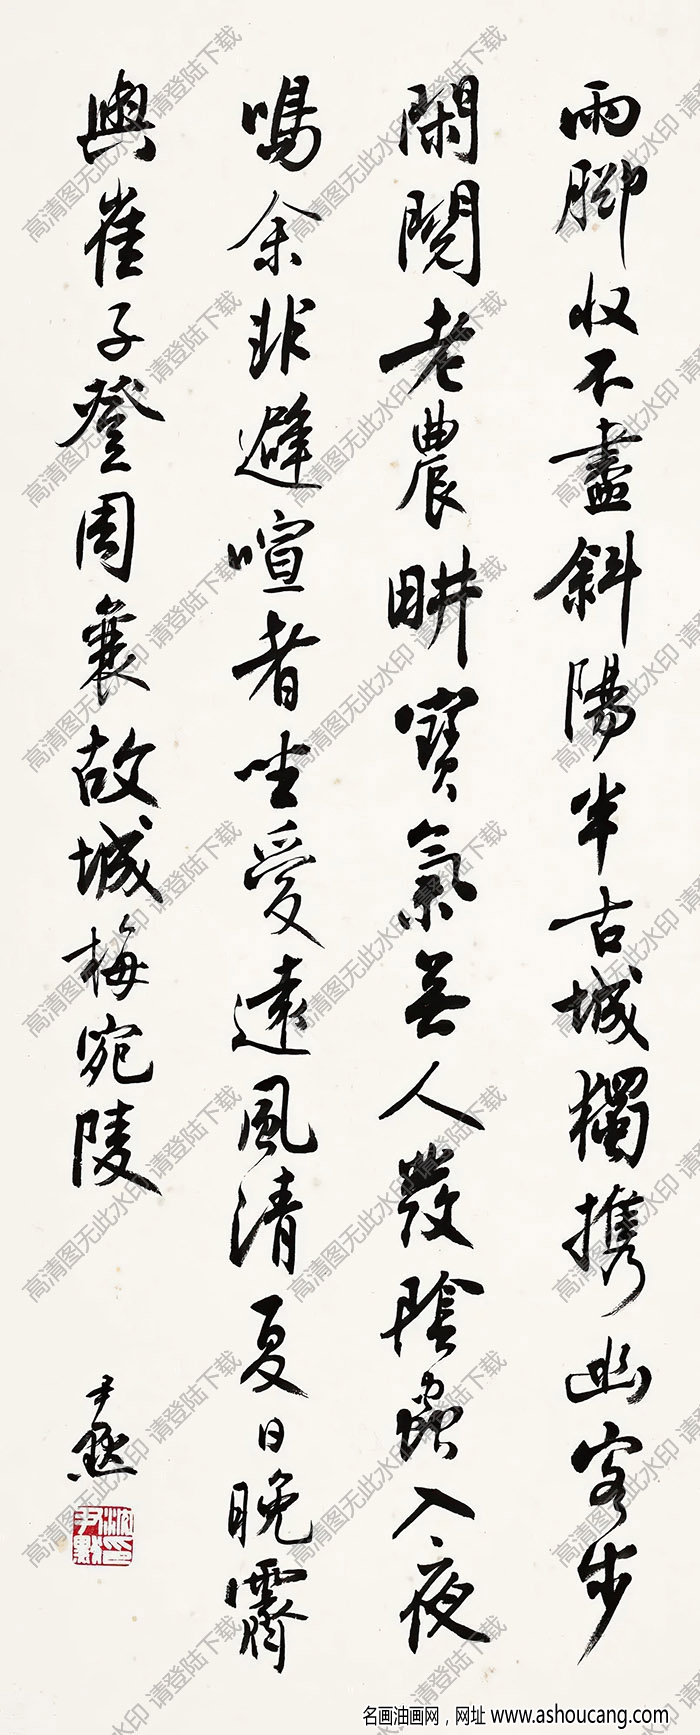 雨腳收不盡斜陽半古城獨携幽客步
閑閱老農耕寶氣無人發陰蟲入夜
鳴余非避喧者坐愛遠風清夏日晚霽
與崔子登周襄故城梅宛陵
尹默
沈尹默印
名画油画网，网址 www.ashoucang.com
高清图无此水印 请登陆下载